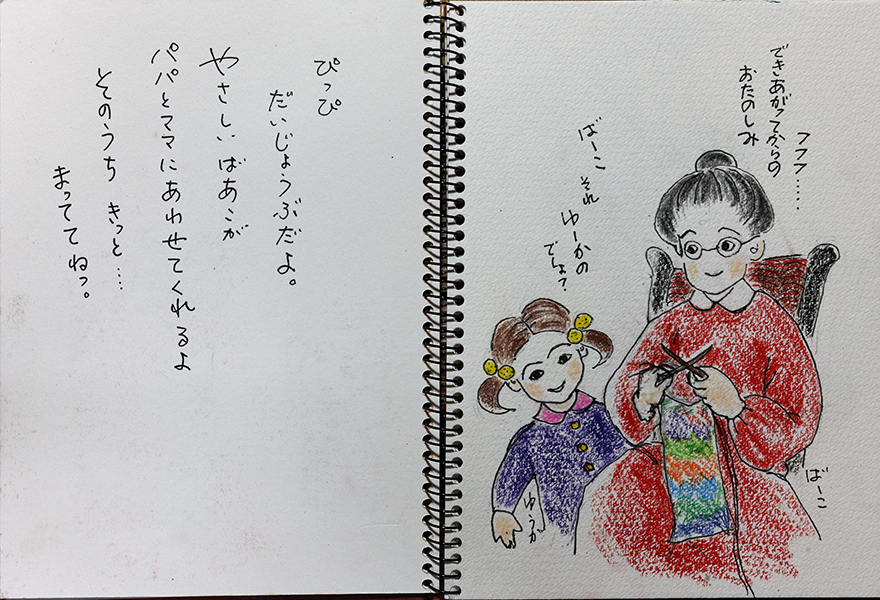 ぴっぴ
だいじょうぶだよ。
やさしいばあこが
パパとママにあわせてくれるよ
そのうち きっと…
まっててねっ。
フフフ……
できあがってからの
おたのしみ
ばーこ それ
ゆーかの
でしょ?
ゆうか
ばーこ